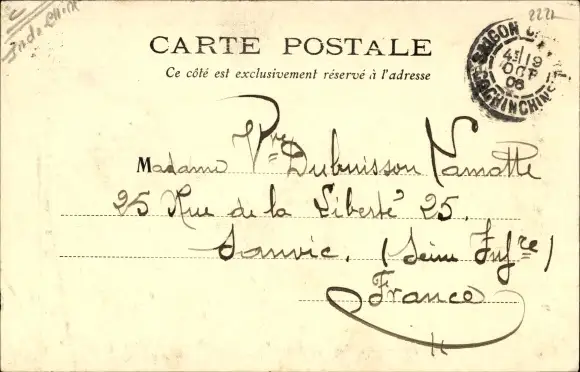 Indo Chine
2221
CARTE POSTALE
Ce côté est exclusivement réservé à l'adresse
SAIGON
4E/19
OCT
06
COCHINCHINE
Madame Vve Dubuisson Lamotte
25 Rue de la Liberté 25.
Sanvic. (Seine Infre)
France